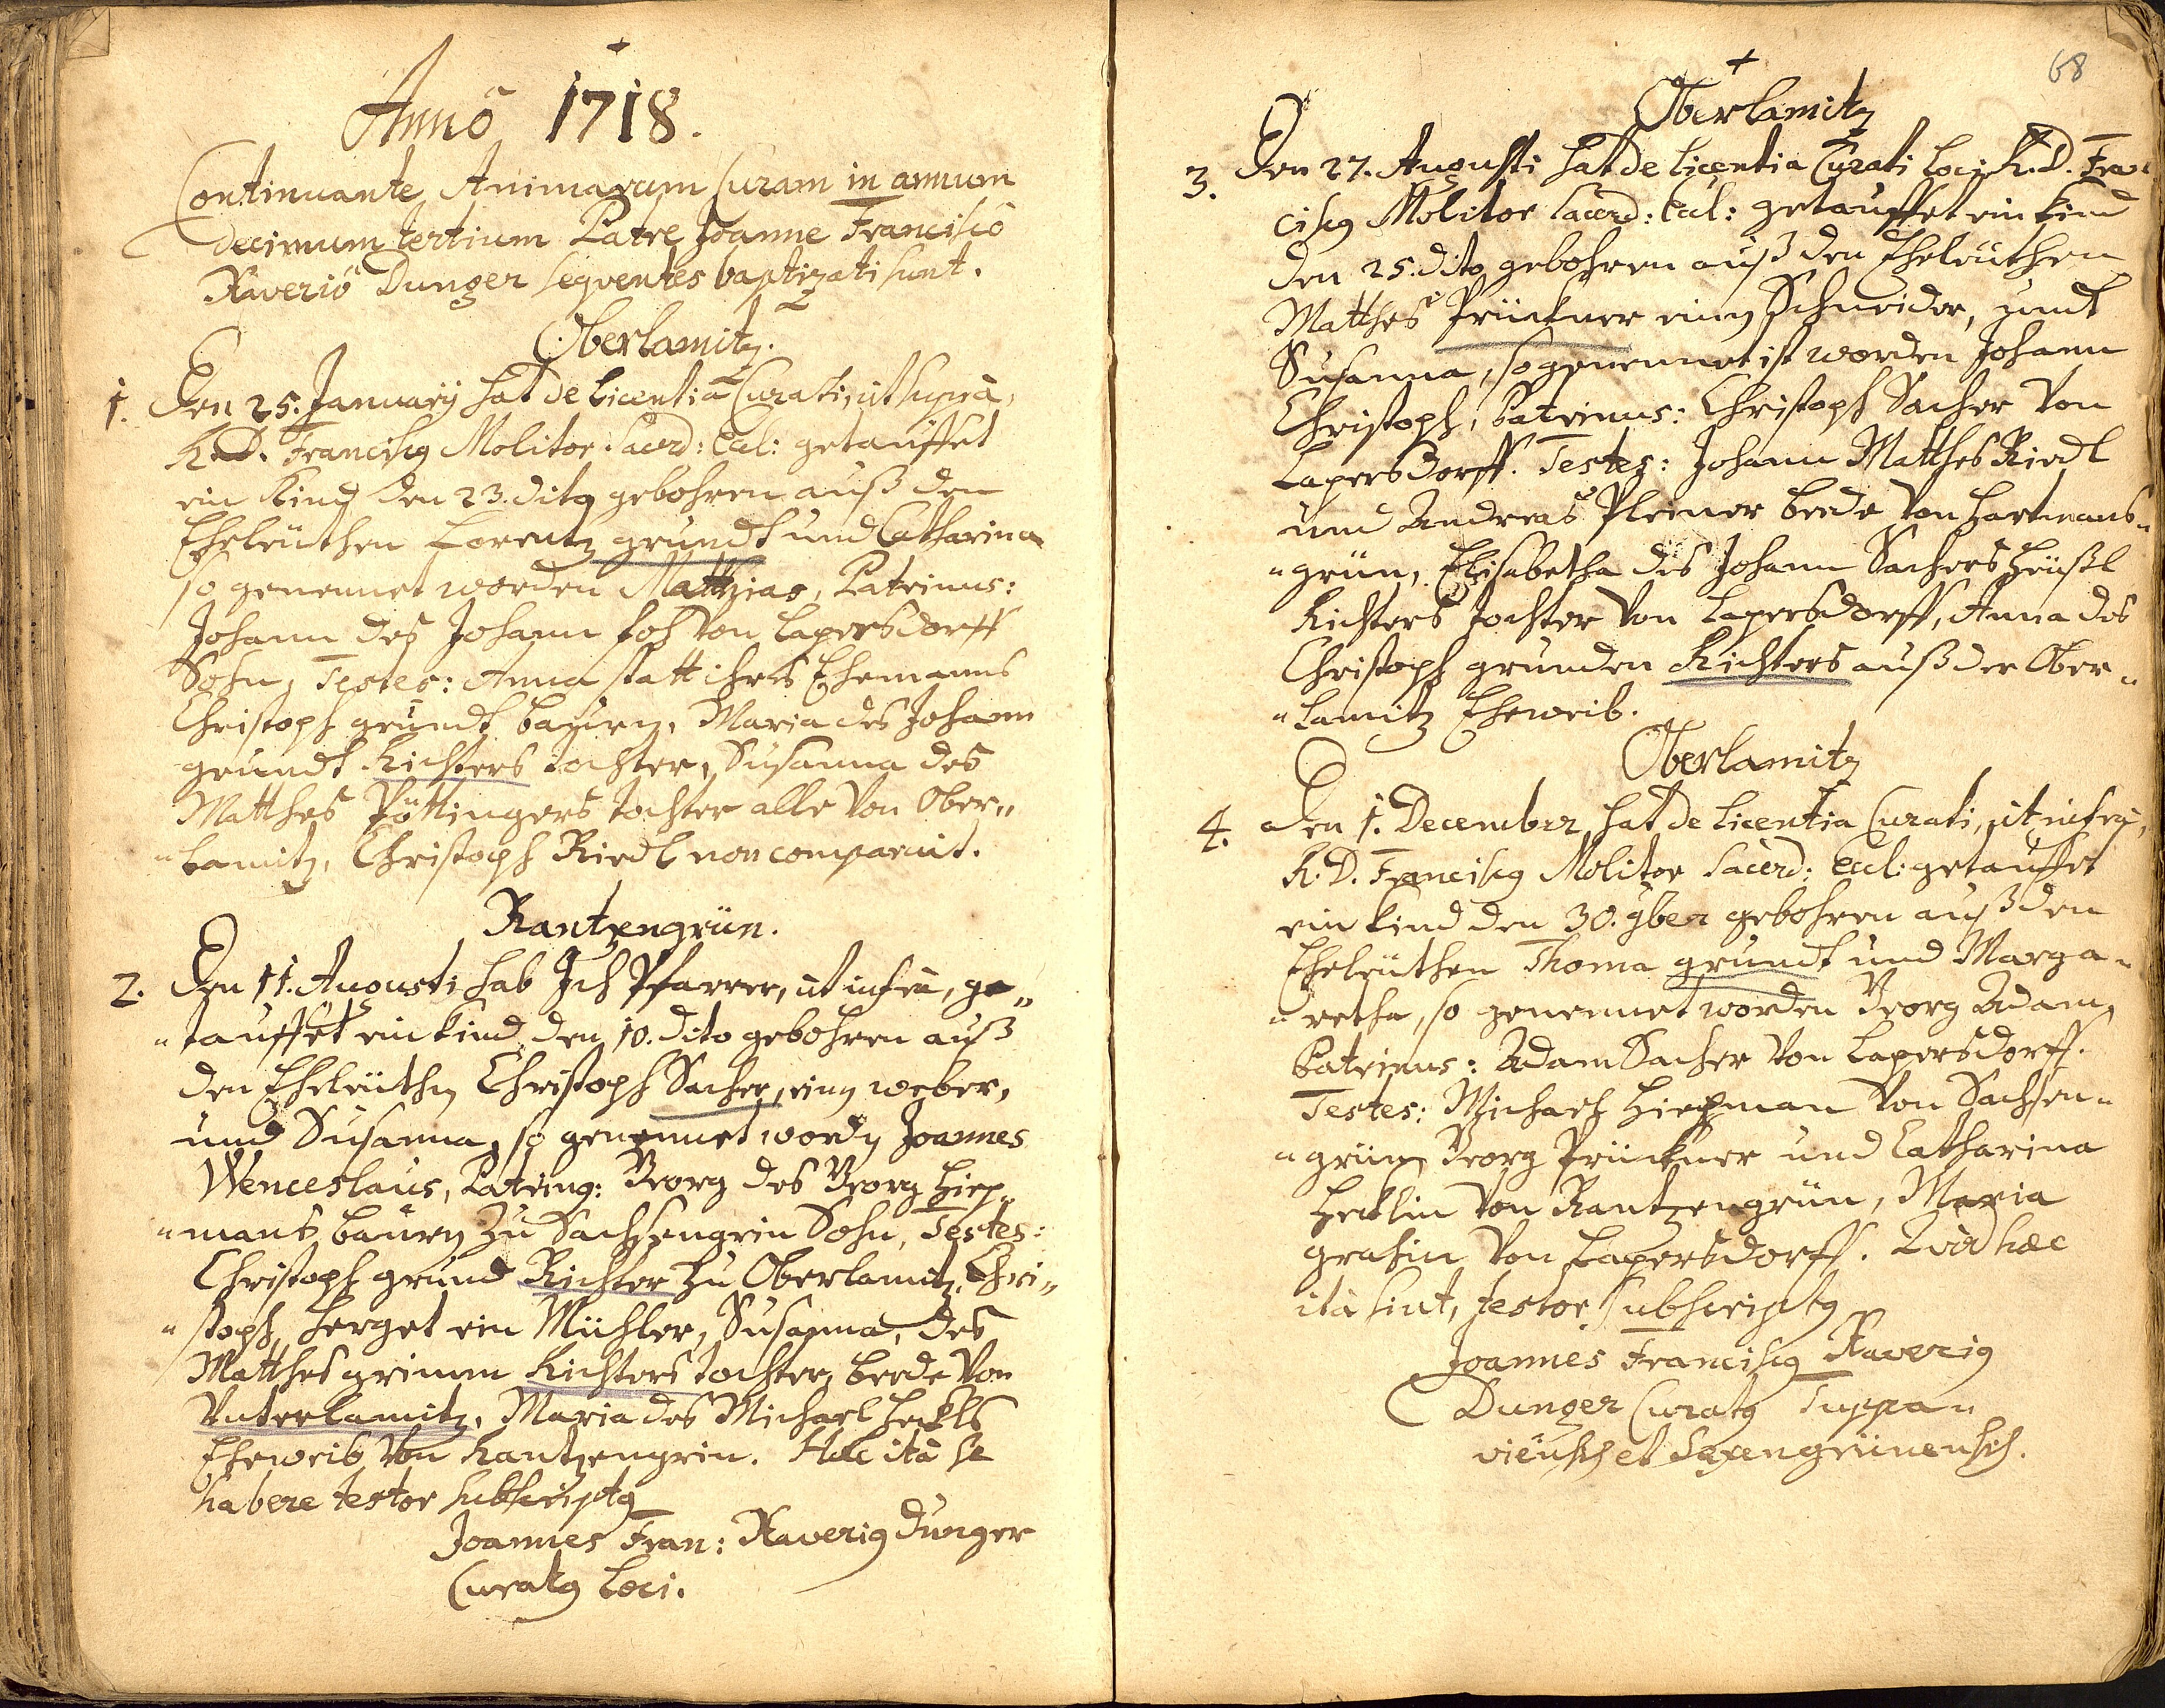 Anno 1718.
Continuante Animarum Curam in annum
decimum tertium Patre Joanne Francisco
Xaverio Dunger sequentes baptizati sunt.
Oberlamitz.
1. Den 25. January hat de licentia Curati, ut supra,
R.D. Franciscg Molitor Sacerd: Eccl: getauffet
ein Kind den 23. dito gebohren auß den
Eheleuthen Lorentz grundt und Catharina
so genennet worden Matthias, Patrinus:
Johann des Johann von Lapersdorff
Sohn, Testes: Anna statt ihres Ehemanns
Christoph grundt bauern, Maria des Johann
grundt Richters tochter, Susanna des
Matthes Pöttingers tochter alle von Ober„
„lamitz, Christoph Riedl non comparuit.
Rantzengrün.
2. Den 11. Augusti hab Ich Pfarrer, ut infra, ge„
„tauffet ein kind den 10. dito gebohren auß
den Eheleuthen Christoph Sacher, einen weber,
und Susanna, so genennet worden Joannes
Wenceslaus, Patring: Georg des Georg Hiep„
„mans bauern zu Sachsengrün Sohn, Testes:
Christoph grund Richter zu Oberlamitz, Chri„
„stoph Herget ein Mühler, Susanna, des
Matthes grimm Richters tochter, beede von
Unterlamitz, Maria des Michael Heckls
Eheweib von Rantzengrün. Haec ita se
habere testor subscriptg
Joannes Fran: Xaverig Dunger
Curatg Loci.
68
Oberlamitz
3. Den 27. Augusti hat de licentia Curati loci R.D. Fran„
ciscg Molitor Sacerd: Eccl: getauffet ein kind
den 25. dito gebohren auß den Eheleuthen
Matthes Prückner einen Schneider, undt
Susanna, so genennet ist worden Johann
Christoph, Patrinus: Christoph Sacher von
Lapersdorff. Testes: Johann Matthes Riedl
und Andreas Pleiner beede von Hartmans„
„grün, Elisabetha des Johann Sachers
Richters Tochter von Lapersdorff, Anna des
Christoph grunden Richters auß der Ober„
„lamitz Eheweib.
Oberlamitz
4. Den 1. December hat de licentia Curati, ut infra,
R.D. Franciscg Molitor Sacerd: Eccl: getauffet
ein kind den 30. 9ber gebohren auß den
Eheleuthen Thoma grundt und Marga„
„retha, so genennet worden Georg Adam,
Patrinus: Adam Sacher von Lapersdorff.
Testes: Michael Hiepman von Sachsen„
„grün, Georg Prückner und Catharina
Hecklin von Rantzengrün, Maria
von Lapersdorff. Quod haec
ita sint, testor subscriptg
Joannes Franciscg Xaverig
Dunger Curatg Tuppau„
viensis et Saxengrünensis.